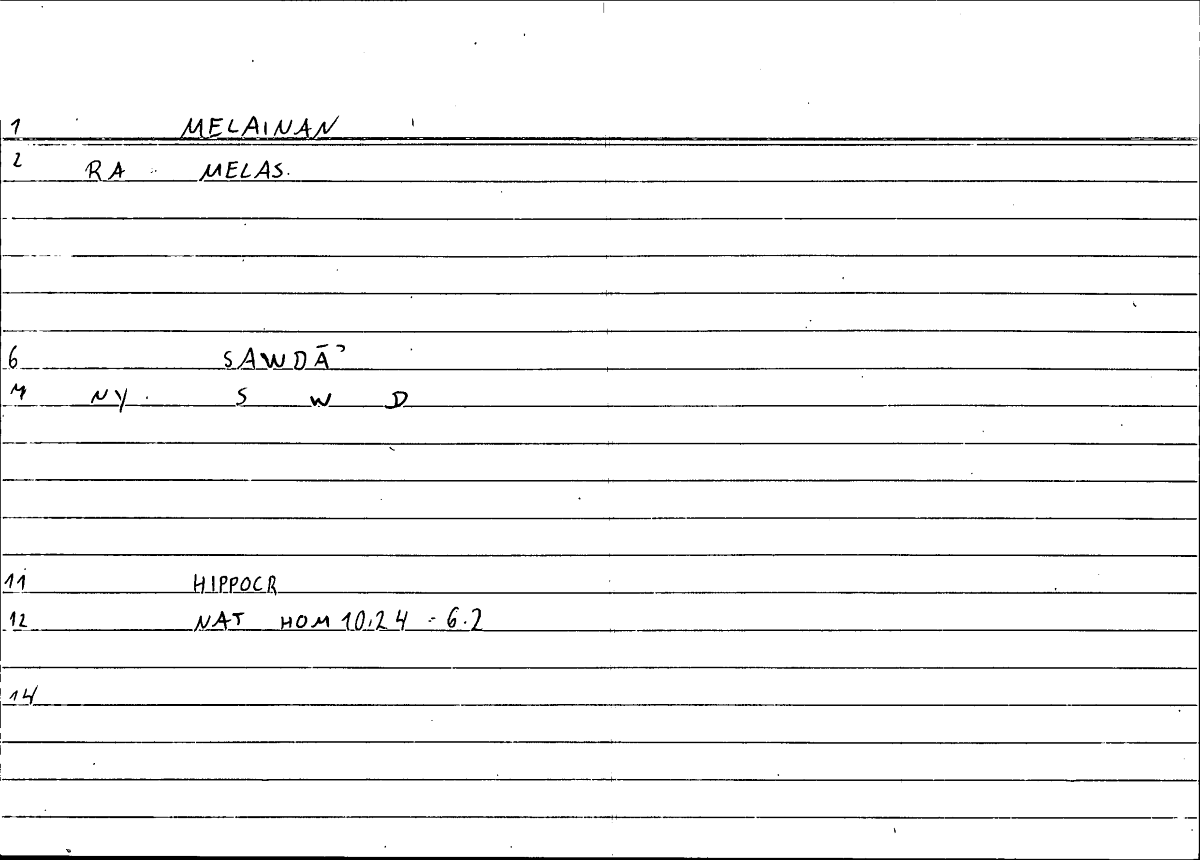 1 MELAINAN
2 RA MELAS.
6 SAWDĀʾ
7 NY. S W D
11 HIPPOCR
12 NAT HOM 10.24 = 6.2
14